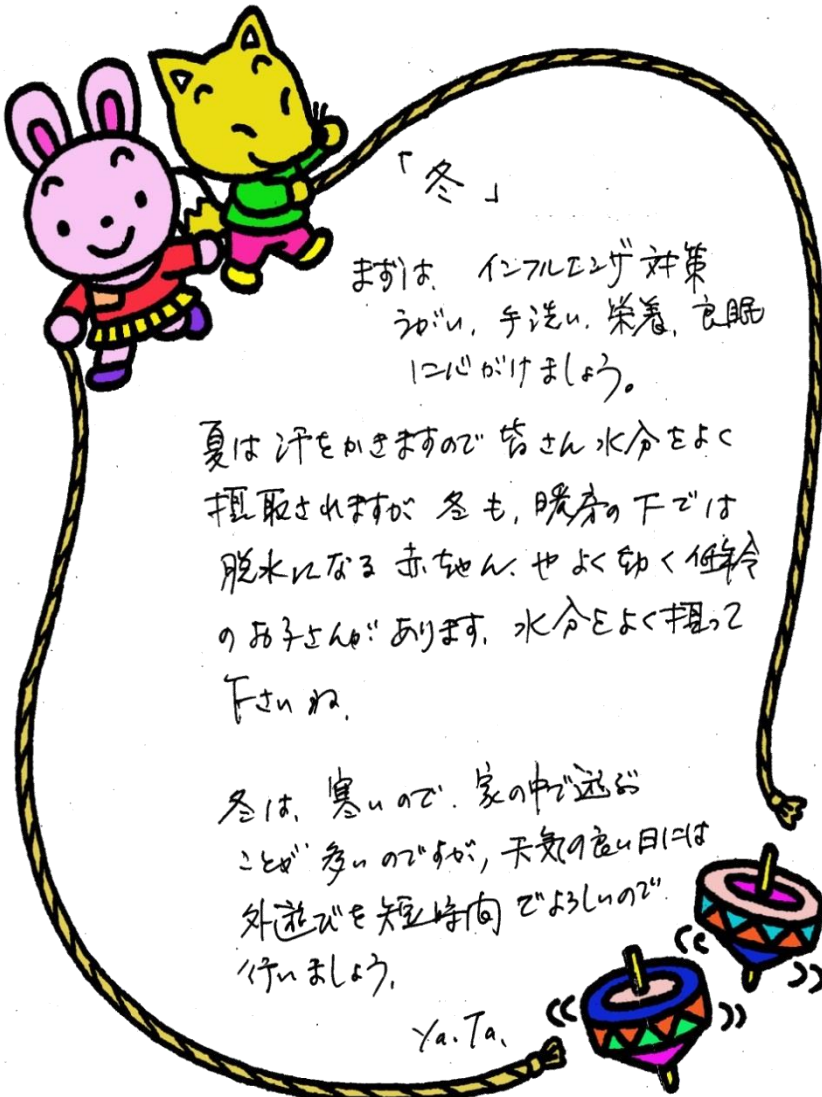 「冬」
まずは、インフルエンザ対策
うがい、手洗い、栄養、良眠
に心がけましょう。
夏は汗をかきますので皆さん水分をよく
摂取されますが冬も、暖房の下では
脱水になる赤ちゃん、やよく動く低年令
のお子さんがあります、水分をよく摂って
下さいね、
冬は、寒いので、家の中で遊ぶ
ことが多いのですが、天気の良い日には
外遊びを短時間でよろしいので
行いましょう、
Ya.Ta.